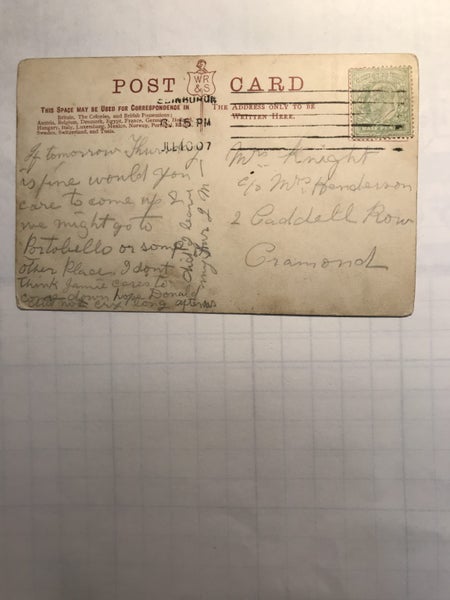 POST CARD
WR
& S
THIS SPACE MAY BE USED FOR CORRESPONDENCE IN
Britain, The Colonies, and British Possessions;
Austria, Belgium, Denmark, Egypt, France, Germany,
Hungary, Italy, Luxemburg, Mexico, Norway,
Sweden, Switzerland, and Tunis.
THE ADDRESS ONLY TO BE
WRITTEN HERE.
EDINBURGH
6 15 PM
JL 10 07
If tomorrow Thursday
is fine would you
care to come up &
we might go to
Portobello or some
other place. I don't
think Jamie cares to
come down hope Donald
did not cry long after
leaving
yours
Mrs Knight
c/o Mrs Henderson
2 Caddell Row
Cramond